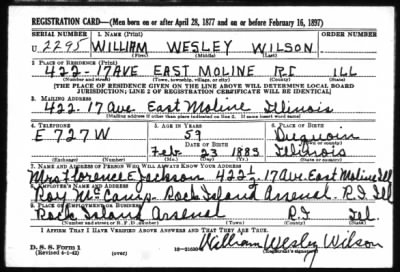 REGISTRATION CARD—(Men born on or after April 28, 1877 and on or before February 16, 1897)
SERIAL NUMBER 1. NAME (Print) ORDER NUMBER
U 2295 WILLIAM WESLEY WILSON
(First) (Middle) (Last)
2. PLACE OF RESIDENCE (Print)
422-17 AVE EAST MOLINE R.I. ILL
(Number and street) (Town, township, village, or city) (County) (State)
[THE PLACE OF RESIDENCE GIVEN ON THE LINE ABOVE WILL DETERMINE LOCAL BOARD
JURISDICTION; LINE 2 OF REGISTRATION CERTIFICATE WILL BE IDENTICAL]
3. MAILING ADDRESS
422-17 Ave. East Moline Illinois
[Mailing address if other than place indicated on line 2. If same insert word same]
4. TELEPHONE 5. AGE IN YEARS 6. PLACE OF BIRTH
E 727 W 59 Duquoin
DATE OF BIRTH (Town or county)
Feb. 23 1883 Illinois
(Exchange) (Number) (Mo.) (Day) (Yr.) (State or country)
7. NAME AND ADDRESS OF PERSON WHO WILL ALWAYS KNOW YOUR ADDRESS
Mrs. Florence E Jackson. 422½ 17 Ave. East Moline Ill
8. EMPLOYER'S NAME AND ADDRESS
Roy McCamp. Rock Island Arsenal. R.I. Ill
9. PLACE OF EMPLOYMENT OR BUSINESS
Rock Island Arsenal R.I. Ill.
(Number and street or R. F. D. number) (Town) (County) (State)
I AFFIRM THAT I HAVE VERIFIED ABOVE ANSWERS AND THAT THEY ARE TRUE.
D. S. S. Form 1
(Revised 4-1-42) (over) William Wesley Wilson
(Registrant's signature)